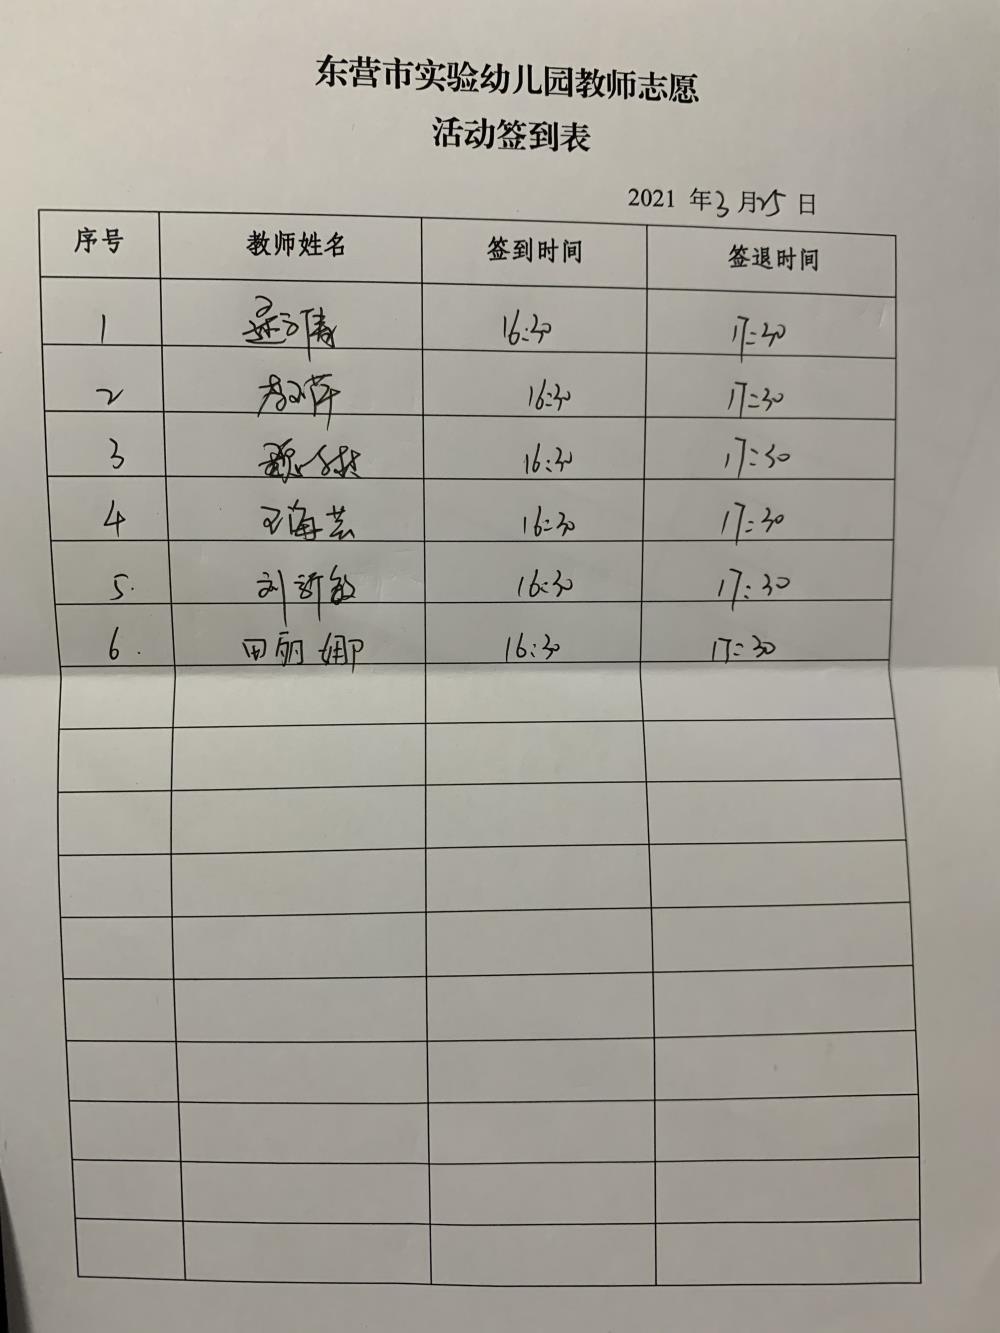 东营市实验幼儿园教师志愿
活动签到表
2021 年3月25日
序号 教师姓名 签到时间 签退时间
1 16:30 17:30
2 16:30 17:30
3 16:30 17:30
4 王海芸 16:30 17:30
5. 刘新敏 16:30 17:30
6. 田丽娜 16:30 17:30